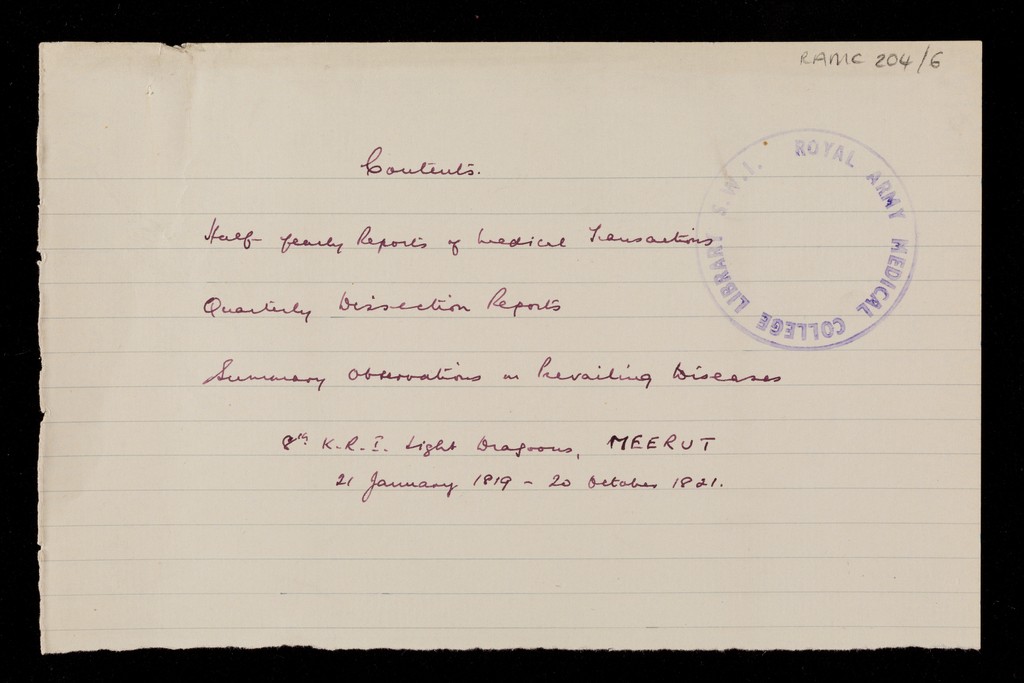 RAMC 204/6
ROYAL ARMY MEDICAL COLLEGE LIBRARY S.W.1.
Contents.
Half-yearly Reports of Medical Transactions
Quarterly Dissection Reports
Summary Observations on Prevailing Diseases
8th K.R.I. Light Dragoons, MEERUT
21 January 1819 - 20 October 1821.